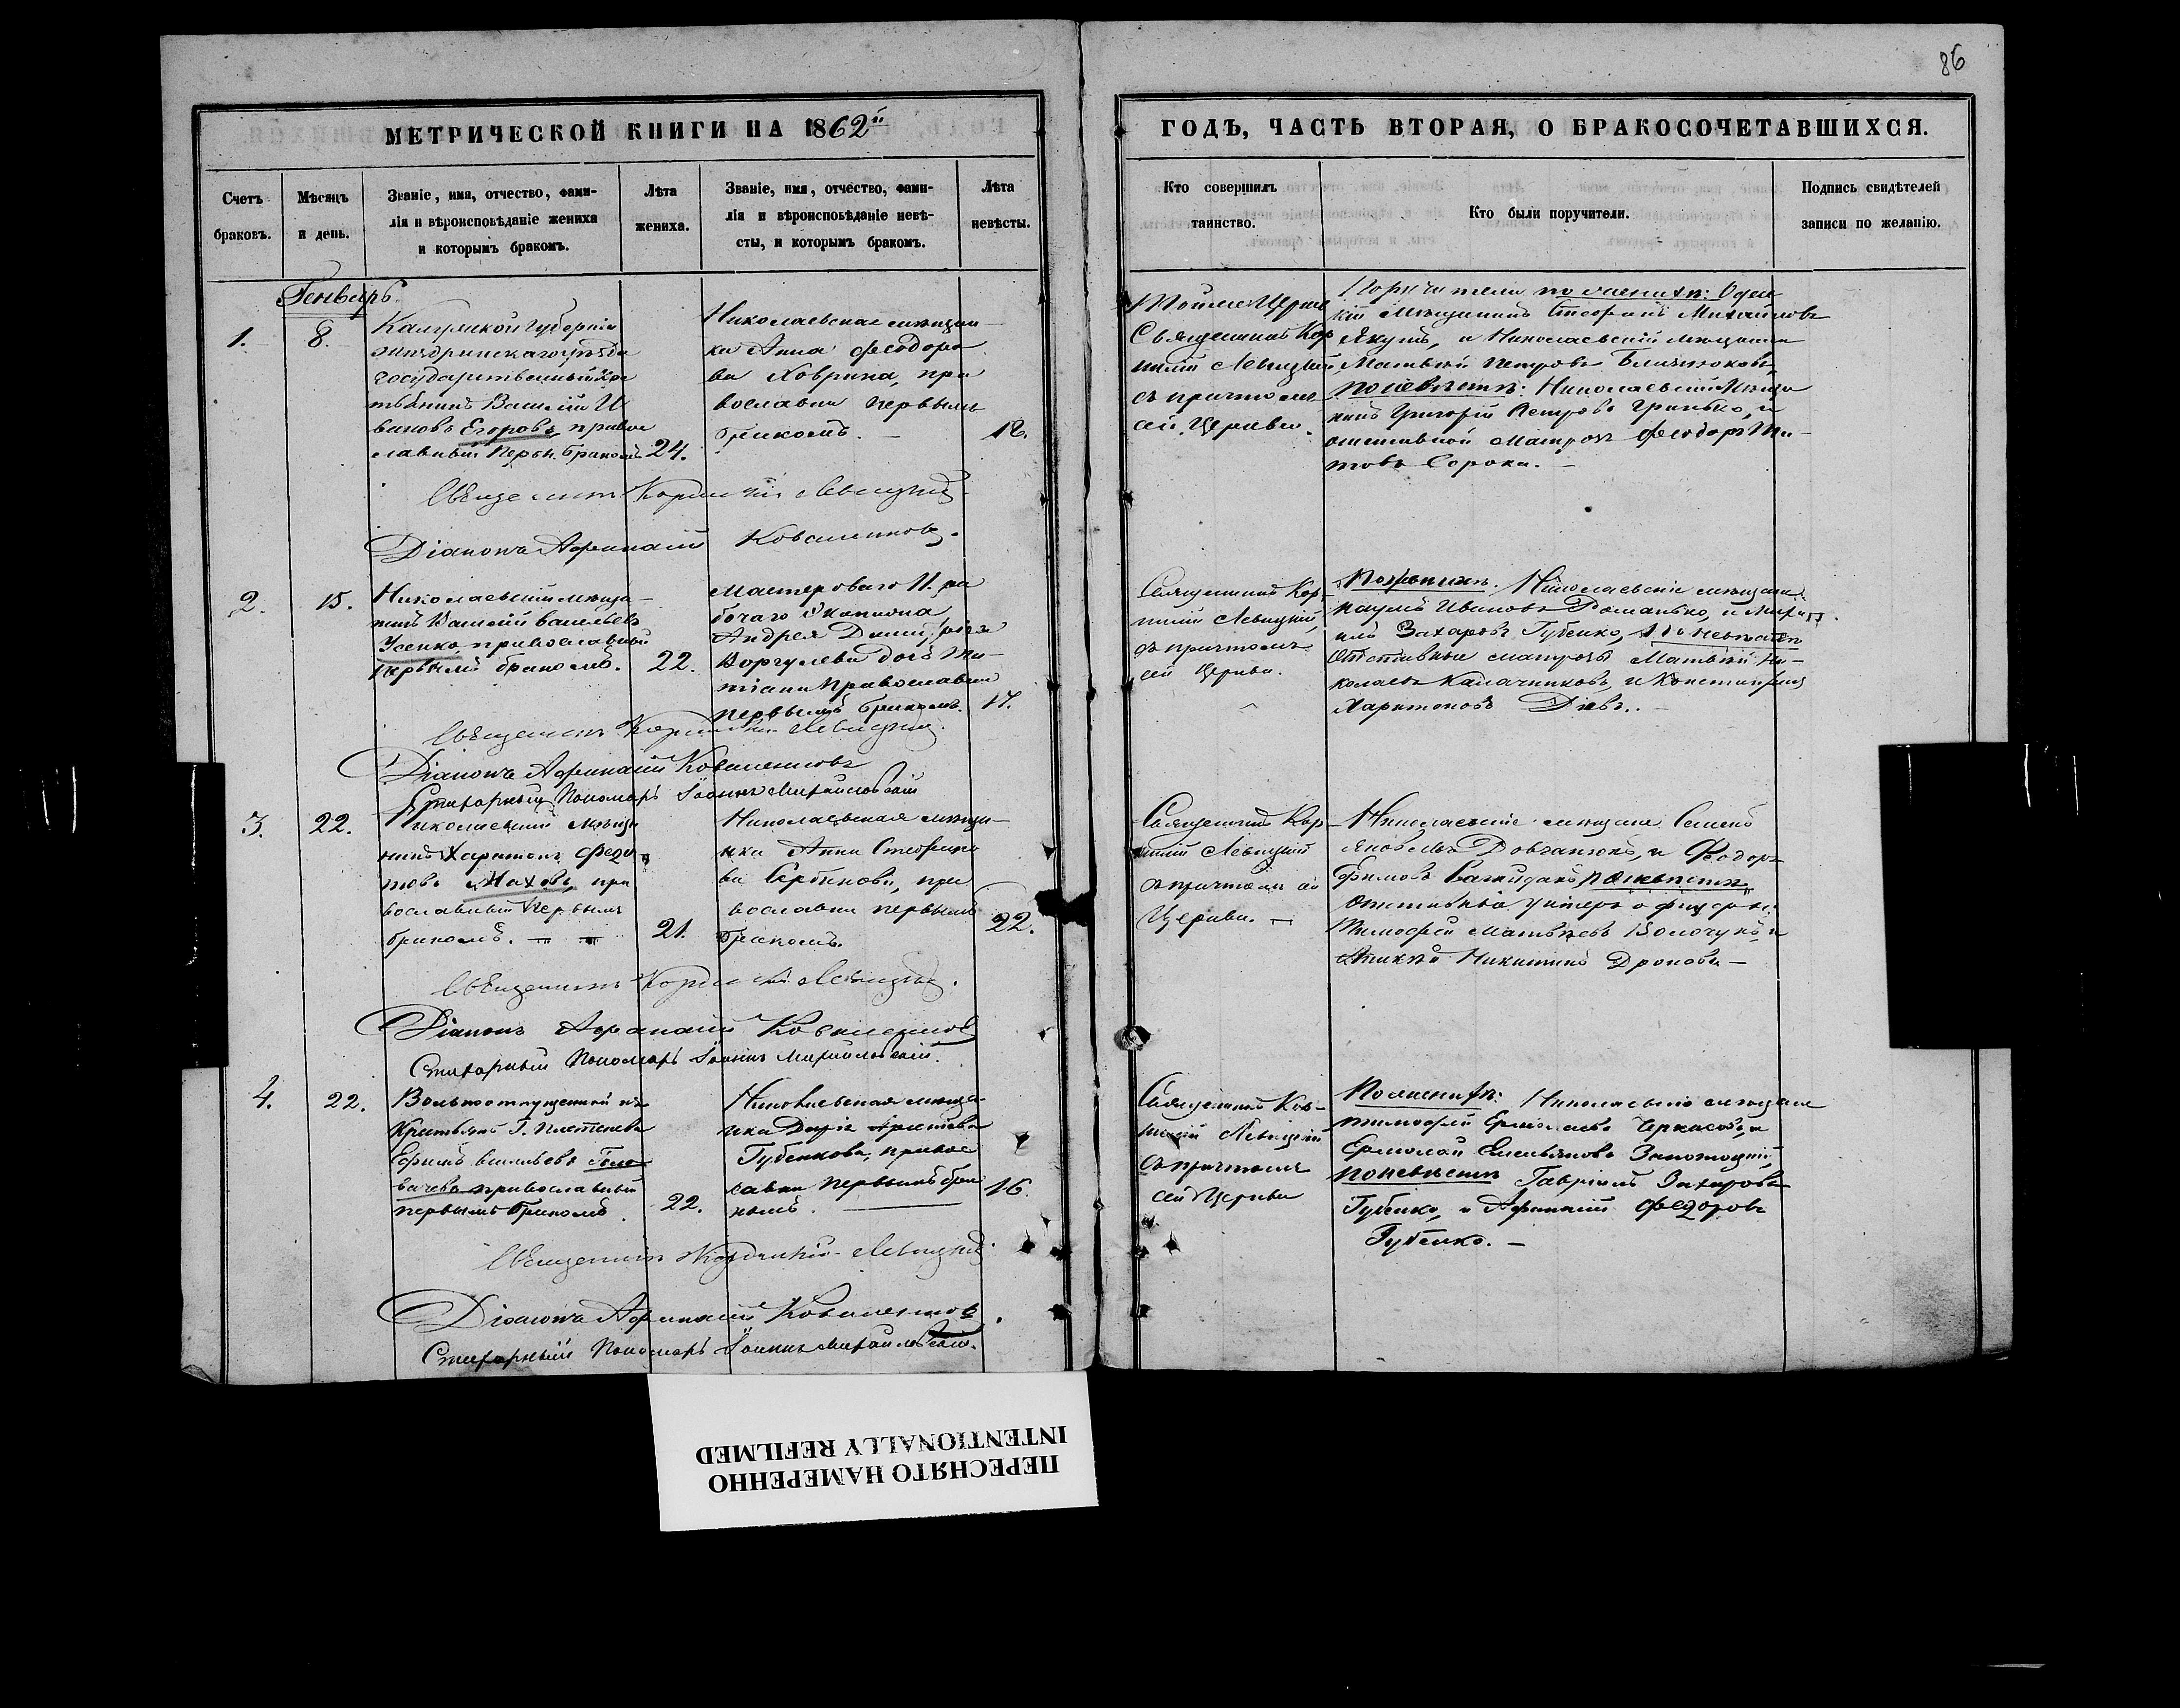 86
МЕТРИЧЕСКОЙ КНИГИ НА 1862й
ГОДЪ, ЧАСТЬ ВТОРАЯ, О БРАКОСОЧЕТАВШИХСЯ.
Счетъ
браковъ.
Мѣсяцъ
и день.
Званіе, имя, отчество, фами-
лія и вѣроисповѣданіе жениха
и которымъ бракомъ.
Лѣта
жениха.
Званіе, имя, отчество, фами-
лія и вѣроисповѣданіе невѣ-
сты, и которымъ бракомъ.
Лѣта
невѣсты.
Кто совершилъ
таинство.
Кто были поручители.
Подпись свидѣтелей
записи по желанію.
Генварь.
1.
8.
Калужской Губерніи
государственный кре
стьянинъ Василій И
вановъ Егоровъ, право
славный перв. бракомъ
24.
Николаевская мѣщан
ка Анна Феодоро
ва Ховрина, пра
вославна первымъ
бракомъ. —
18.
Тойже Церкви
Священникъ Кор
нилій Левицкій,
съ причтомъ
сей Церкви.
Поручители по женихѣ: Одес
кій мѣщанинъ Стефанъ Михайловъ
Якутъ, и Николаевскій мѣщанинъ
Матвѣй Петровъ
по невѣстѣ: Николаевскій Мѣща
нинъ Григорій Петровъ Гринько, и
отставной матрозъ Феодоръ Ти-
товъ Сорока. —
Священникъ Корнилій Левицкій
Діаконъ Афанасій Коваленковъ.
2.
15.
Николаевскій мѣща-
нинъ Василій Васильевъ
Усенко православный
первымъ бракомъ.
22.
Мастероваго И. ра
бочаго Экипажа
Андрея
дочь Та-
тіана православна
первымъ бракомъ.
17.
Священникъ Кор-
нилій Левицкій,
съ причтомъ
сей Церкви.
По женихѣ. Николаевскіе мѣщане
Наумъ Ивановъ Романько, и
Захаровъ Губенко, по невѣстѣ
Отставные матрозы Матвѣй Ни-
колаевъ Калачниковъ, и Константинъ
Харитоновъ
Священникъ Корнилій Левицкій.
Діаконъ Афанасій Коваленковъ
Стихарный Пономарь Іоаннъ Михайловскій
3.
22.
Николаевскій мѣща
нинъ Харитонъ Федо
товъ Маховъ, пра
вославный первымъ
бракомъ. —
21.
Николаевская мѣща-
нка Анна Стефано
ва Сербинова, пра
вославна первымъ
бракомъ.
22.
Священникъ Кор-
нилій Левицкій
съ причтомъ сей
Церкви. —
Николаевскіе мѣщане Семенъ
Яковлевъ Довганюкъ, и Феодоръ
Ефимовъ по невѣстѣ
Отставные унтеръ офицеры:
Тимофей Матвѣевъ и
Никитинъ Дроновъ —
Священникъ Корнилій Левицкій.
Діаконъ Афанасій Коваленковъ
Стихарный Пономарь Іоаннъ Михайловскій.
4.
22.
Вольноотпущенный изъ
Крестьянъ Г.
Ефимъ Васильевъ
православный
первымъ бракомъ.
22.
Николаевская мѣща-
нка Дарія
Губенкова, право
славна первымъ бра
комъ.
16.
Священникъ Кор-
нилій Левицкій
съ причтомъ
сей Церкви
По женихѣ: Николаевскіе мѣщане
Тимофей Ермолаевъ Черкасовъ, и
Ермолай Емельяновъ
по невѣстѣ Гавріилъ Захаровъ
Губенко, и Афанасій Федоровъ
Губенко. —
Священникъ Корнилій Левицкій
Діаконъ Афанасій Коваленковъ.
Стихарный Пономарь Іоаннъ Михайловскій.
ПЕРЕСНЯТО НАМЕРЕННО
INTENTIONALLY REFILMED